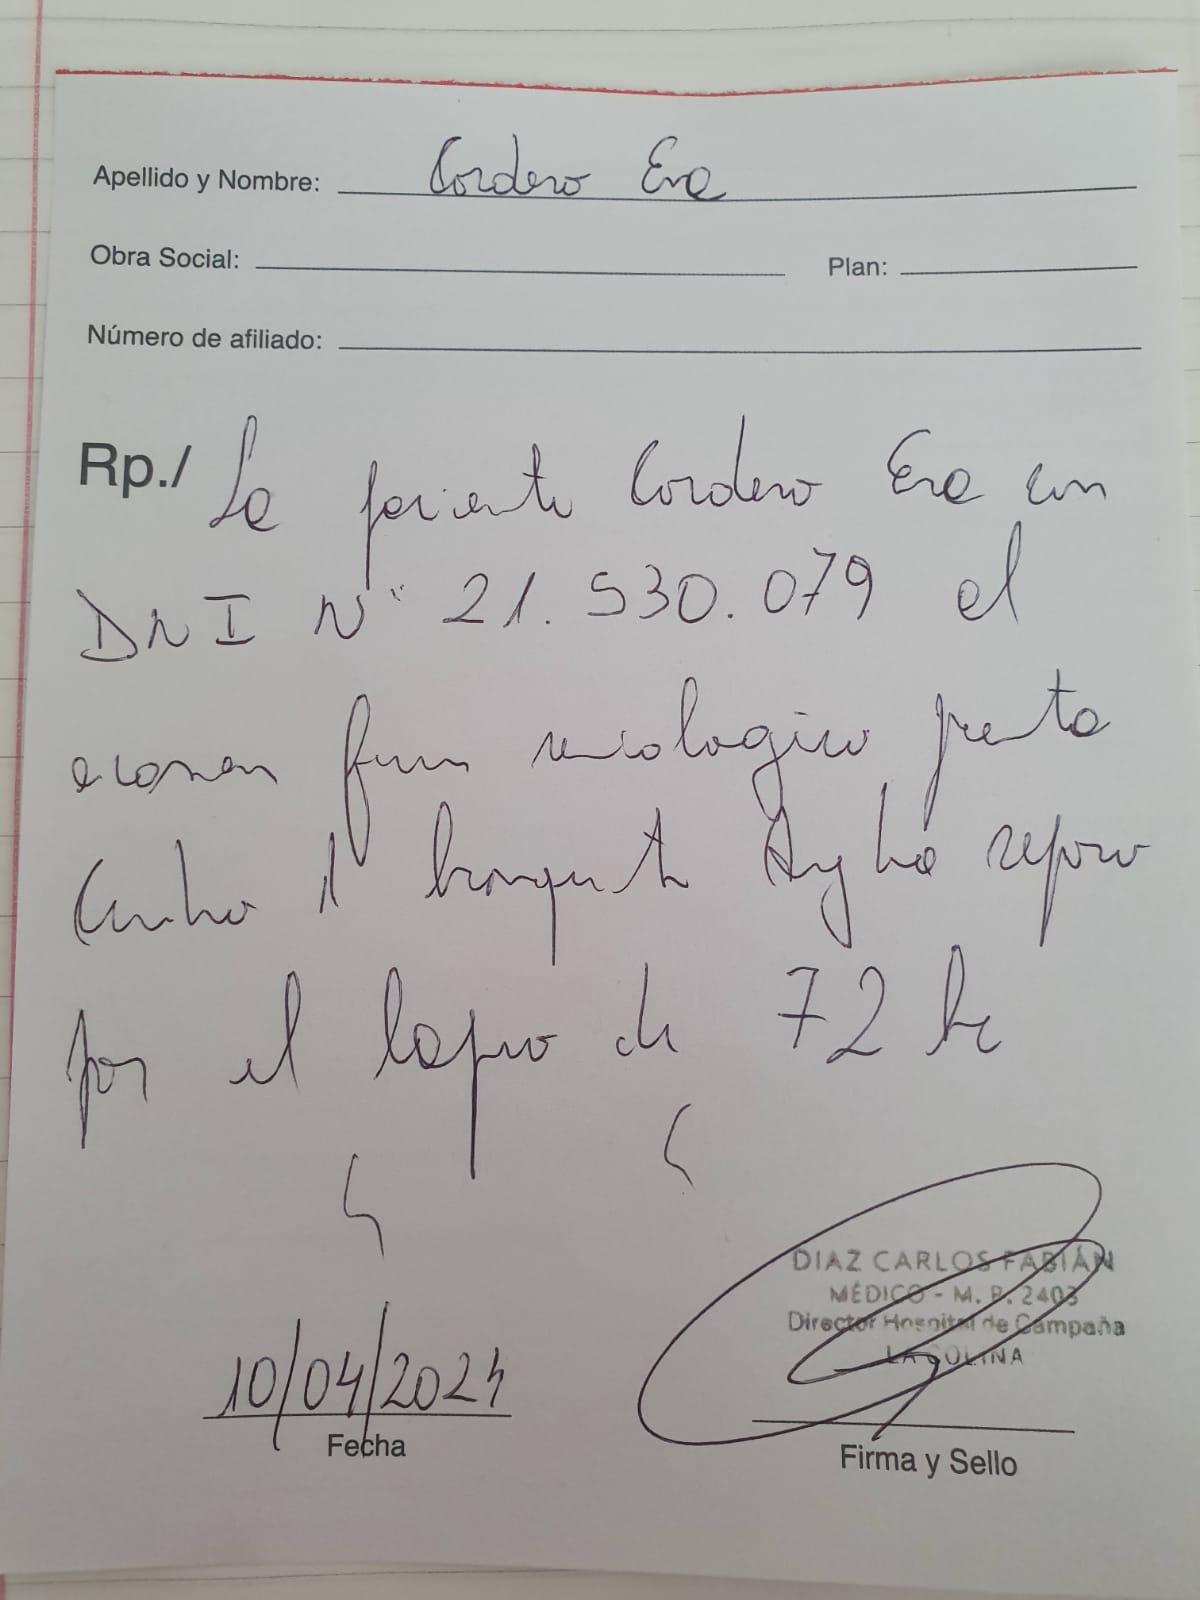 Apellido y Nombre: Cordero Eva
Obra Social:
Plan:
Número de afiliado:
Rp./ La paciente Cordero Eva con
DNI N° 21.530.079 el
examen fisico semiologico presenta
Cuadro de bronquitis Aguda reposo
por el lapso de 72 hs
10/04/2024
Fecha
DIAZ CARLOS FABIÁN
MÉDICO - M. P. 2403
Director Hospital de Campaña
LA COLINA
Firma y Sello